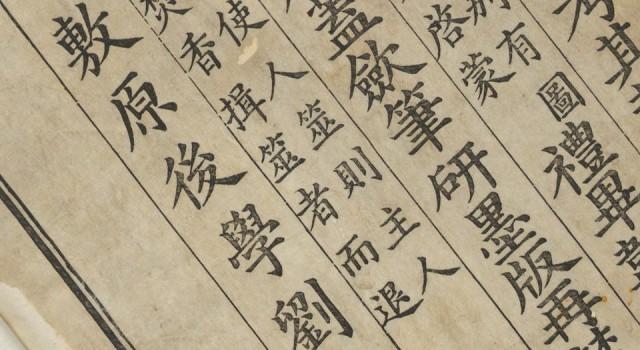 其
有圖
啓蒙
禮畢
蓋斂筆研墨版再
使人筮則主人
焚香揖筮者而退
敷原後學劉